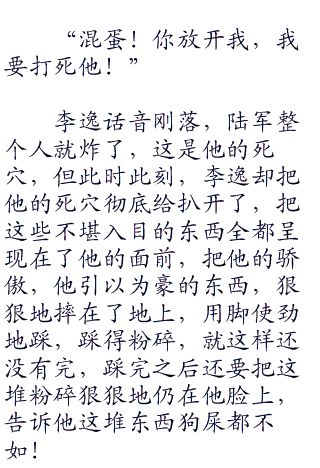 “混蛋！你放开我，我
要打死他！”
李逸话音刚落，陆军整
个人就炸了，这是他的死
穴，但此时此刻，李逸却把
他的死穴彻底给扒开了，把
这些不堪入目的东西全都呈
现在了他的面前，把他的骄
傲，他引以为豪的东西，狠
狠地摔在了地上，用脚使劲
地踩，踩得粉碎，就这样还
没有完，踩完之后还要把这
堆粉碎狠狠地仍在他脸上，
告诉他这堆东西狗屎都不
如！